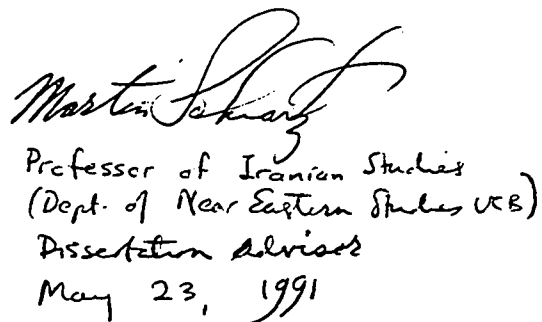 Martin Schwartz
Professor of Iranian Studies
(Dept. of Near Eastern Studies UCB)
Dissertation Advisor
May 23, 1991